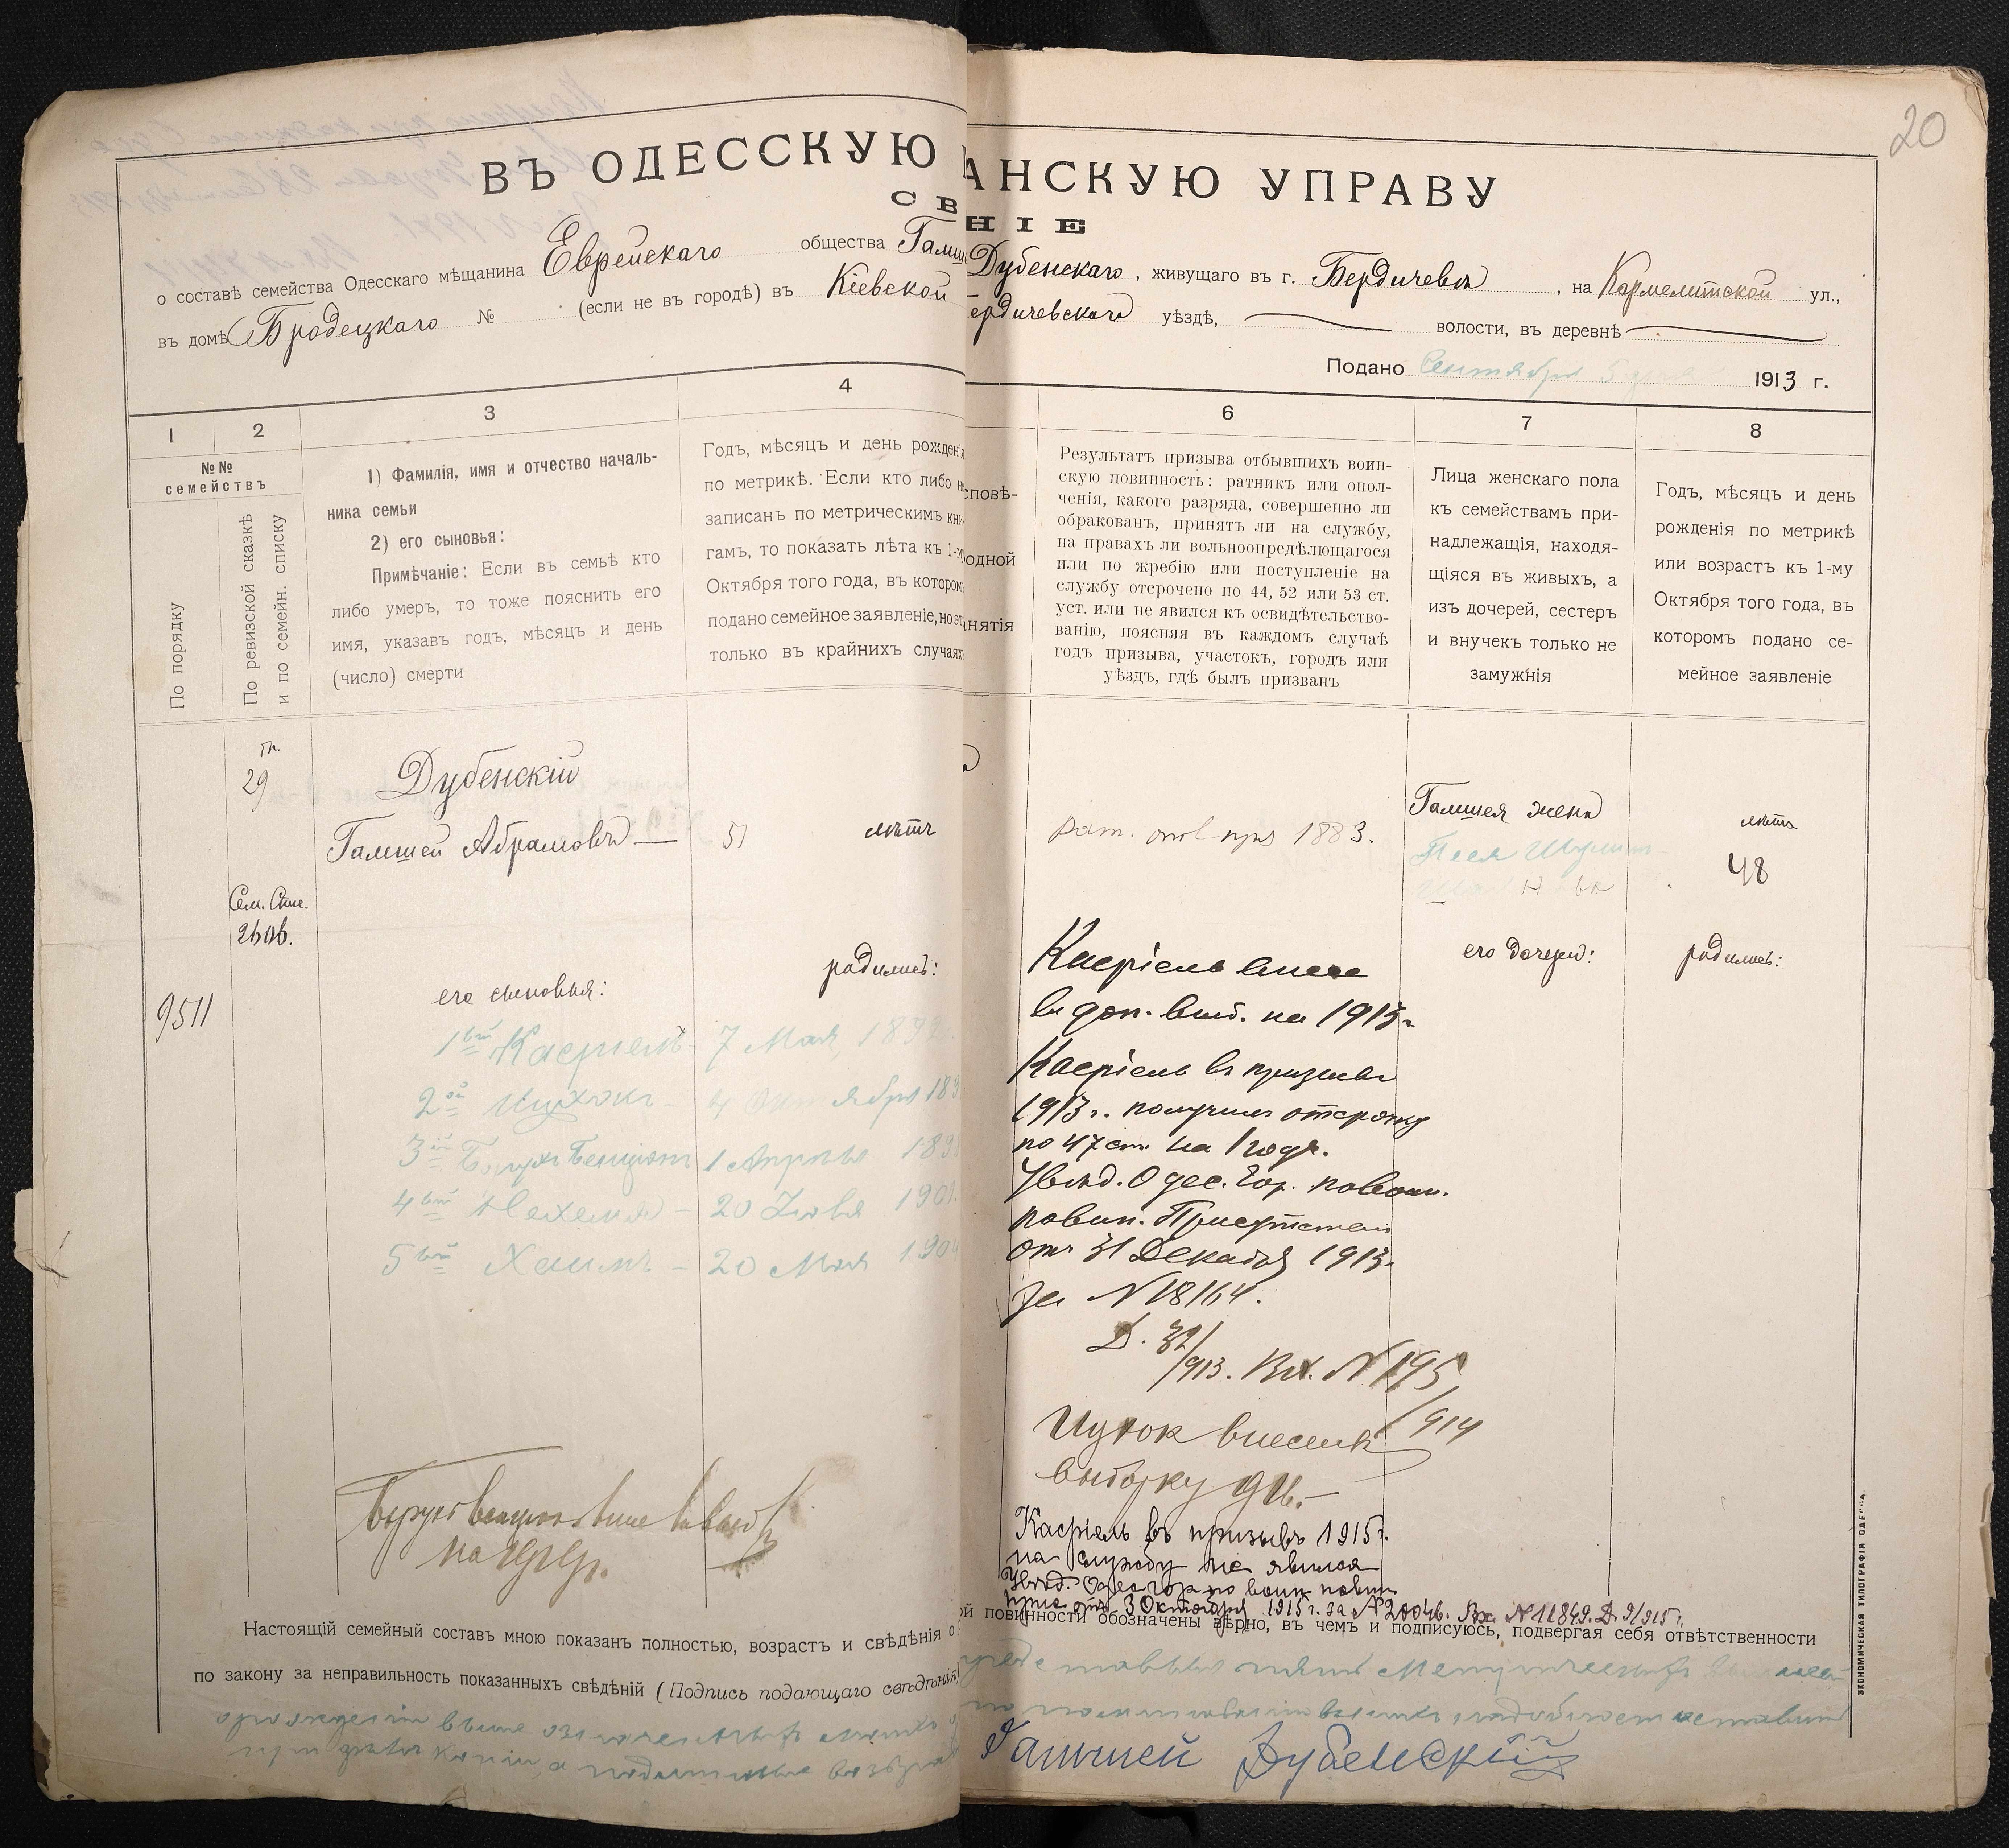 20
ВЪ ОДЕССКУЮ АНСКУЮ УПРАВУ
СВ НІЕ
о составѣ семейства Одесскаго мѣщанина Еврейскаго общества Гамш Дубенскаго, живущаго въ г. Бердичевѣ, на Кармелитской ул.,
въ домѣ Бродецкаго № (если не въ городѣ) въ Кіевской ердичевскаго уѣздѣ, волости, въ деревнѣ
Подано Сентября 5 1913 г.
1 2 3 4 6 7 8
№№
семействъ
По порядку
По ревизской сказкѣ
и по семейн. списку
1) Фамилія, имя и отчество началь-
ника семьи
2) его сыновья:
Примѣчаніе: Если въ семьѣ кто
либо умеръ, то тоже пояснить его
имя, указавъ годъ, мѣсяцъ и день
(число) смерти
Годъ, мѣсяцъ и день рожденія
по метрикѣ. Если кто либо не
записанъ по метрическимъ кни-
гамъ, то показать лѣта къ 1-му
Октября того года, въ которомъ
подано семейное заявленіе, но это
только въ крайнихъ случаяхъ
сповѣ-
одной
анятія
Результатъ призыва отбывшихъ воин-
скую повинность: ратникъ или опол-
ченія, какого разряда, совершенно ли
обракованъ, принятъ ли на службу,
на правахъ ли вольноопредѣлющагося
или по жребію или поступленіе на
службу отсрочено по 44, 52 или 53 ст.
уст. или не явился къ освидѣтельство-
ванію, поясняя въ каждомъ случаѣ
годъ призыва, участокъ, городъ или
уѣздъ, гдѣ былъ призванъ
Лица женскаго пола
къ семействамъ при-
надлежащія, находя-
щіяся въ живыхъ, а
изъ дочерей, сестеръ
и внучекъ только не
замужнія
Годъ, мѣсяцъ и день
рожденія по метрикѣ
или возрастъ къ 1-му
Октября того года, въ
которомъ подано се-
мейное заявленіе
29
Дубенскій
Гамшей Абрамовъ — 51 лѣтъ
рат. опол. при 1883.
Гамшея жена
Песя
лѣтъ
48
Сем. Спис.
его сыновья: родились:
его дочери: родились:
9511
1вый Касріель - 7 Мая, 189
2ой Ицхокъ - 4 Октября 189
3ій Бенціонъ 1 Апрѣля 189
4вый Нехемія - 20 Іюля 1901
5вый Хаимъ - 20 Мая 1904
Касріель внесе
въ доп. выб. на 1913 г.
Касріель въ призывъ
1913 г. получилъ отсрочку
по 47 ст. на 1 годъ.
Увѣд. Одес. Гор. по воин.
повин. Присутствія
отъ 31 Декабря 1913 г.
за N 18164.
Д. 32/913. Вх. N 195/914
Ицхок внесенъ
выборку
Касріель въ призывъ 1915 г.
на службу не явился
Увѣд. Одес гор по воин повин
прис отъ 3 Октября 1915 г. за № 20046. Вх. N 11849. Д. 9/915 г.
Настоящій семейный составъ мною показанъ полностью, возрастъ и свѣдѣнія о ой повинности обозначены вѣрно, въ чемъ и подписуюсь, подвергая себя отвѣтственности
по закону за неправильность показанныхъ свѣдѣній (Подпись подающаго свѣдѣнія)
Гамшей Дубенскій
ЭКОНОМИЧЕСКАЯ ТИПОГРАФІЯ ОДЕССА